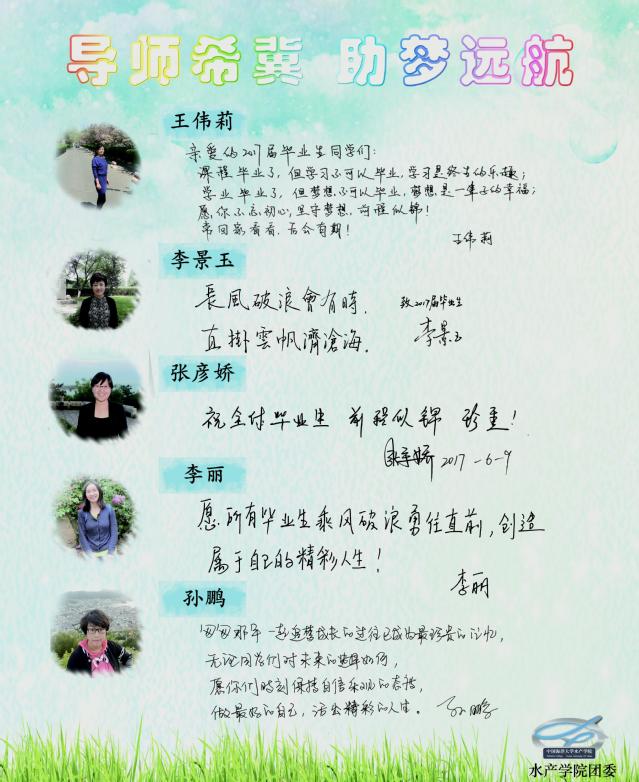 导师希冀 助梦远航
王伟莉
亲爱的2017届毕业生同学们：
课程毕业了，但学习不可以毕业，学习是终生的乐趣；
学业毕业了，但梦想不可以毕业，梦想是一辈子的幸福；
愿你不忘初心，坚守梦想，前程似锦！
常回家看看，后会有期！
王伟莉
李景玉
長風破浪會有時， 致2017届毕业生
直掛雲帆濟滄海。 李景玉
张彦娇
祝全体毕业生 前程似锦 珍重！
张彦娇 2017-6-9
李丽
愿所有毕业生乘风破浪勇往直前，创造
属于自己的精彩人生！
李丽
孙鹏
匆匆那年 一起追梦成长的过往已成为最珍贵的记忆，
无论同学们对未来的选择如何，
愿你们时刻保持自信乐观的态度，
做最好的自己，活出精彩的人生。 孙鹏
中国海洋大学水产学院
水产学院团委